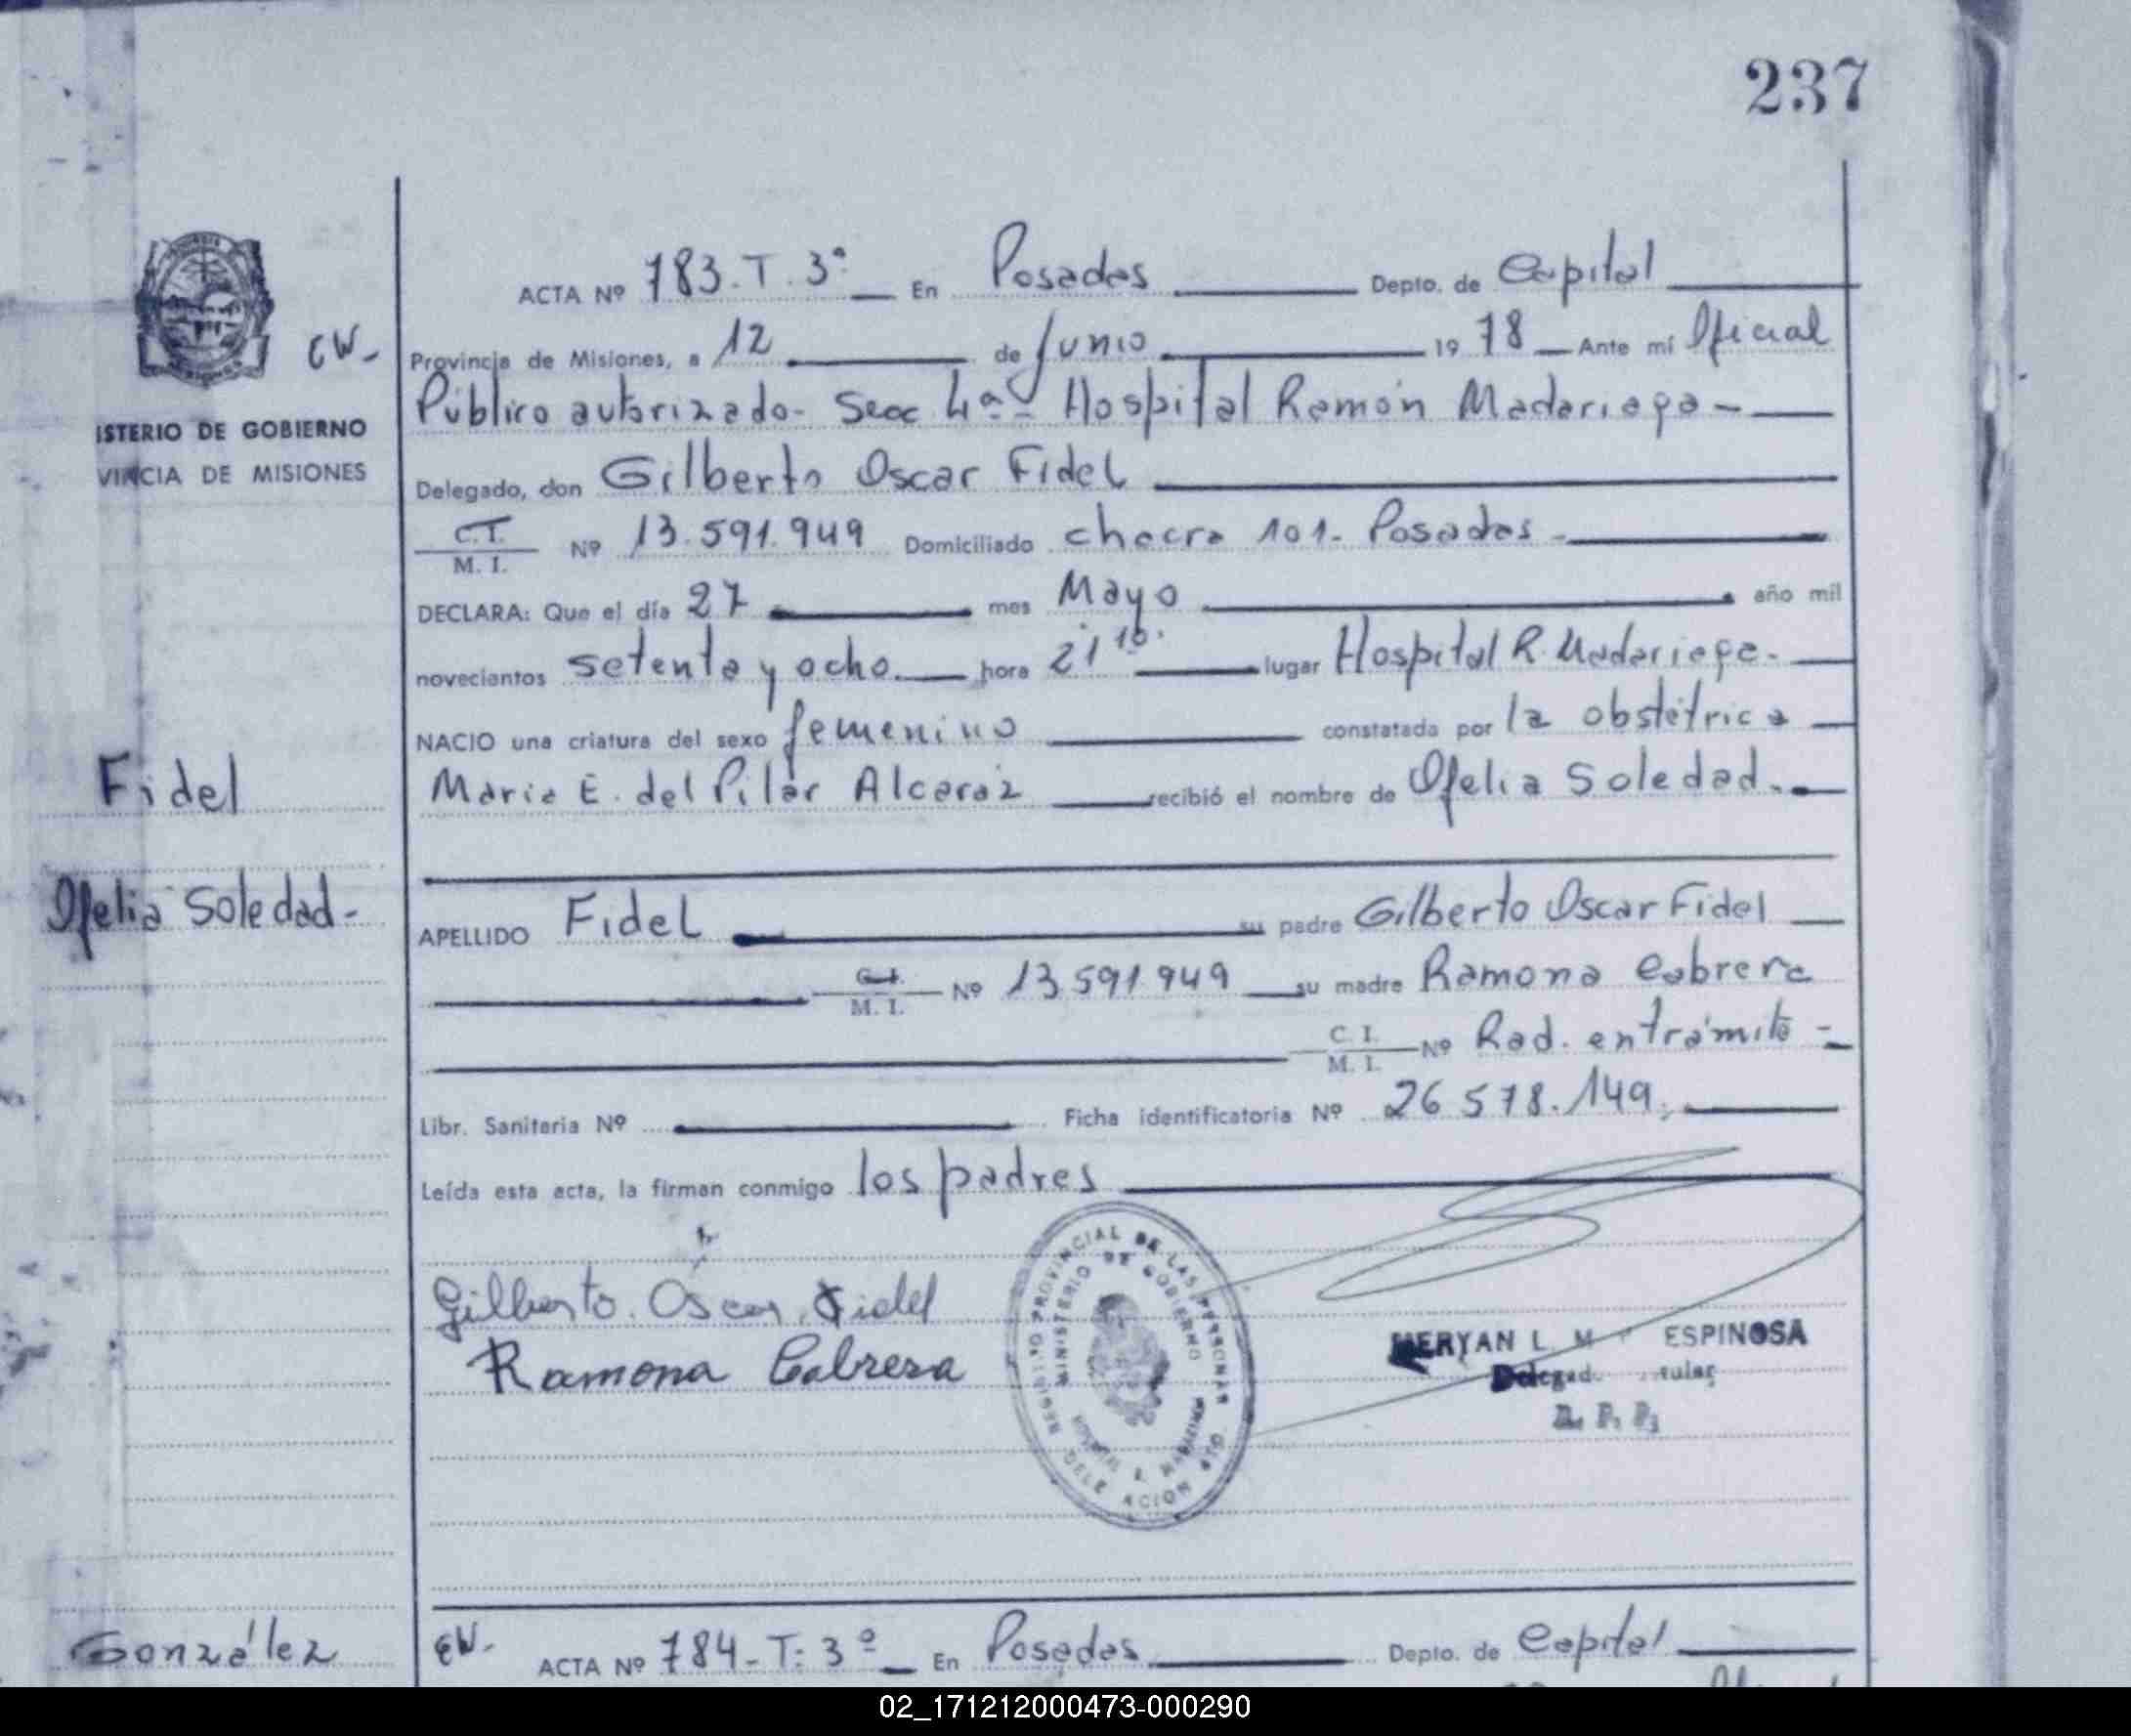 237
ACTA Nº 783.T.3ª En Posadas Depto. de Capital
CW- Provincia de Misiones, a 12 de Junio 19 78 Ante mí Oficial
Público autorizado- Secc 4ª- Hospital Ramón Madariaga-
ISTERIO DE GOBIERNO
VINCIA DE MISIONES
Delegado, don Gilberto Oscar Fidel
C.I. M. I. Nº 13.591.949 Domiciliado chacra 101- Posadas-
DECLARA: Que el día 27 mes Mayo año mil
novecientos setenta y ocho. hora 21 10. lugar Hospital R. Madariaga-
NACIO una criatura del sexo femenino constatada por la obstétrica
Fidel
Maria E. del Pilar Alcaraz recibió el nombre de Ofelia Soledad.-
Ofelia Soledad-
APELLIDO Fidel su padre Gilberto Oscar Fidel
C.I. M. I. Nº 13591949 su madre Ramona Cabrera
C. I. M. I. Nº Rad. en trámite-
Libr. Sanitaria Nº Ficha identificatoria Nº 26 578.149.
Leída esta acta, la firman conmigo los padres
Gilberto Oscar Fidel
Ramona Cabrera
REGISTRO PROVINCIAL DE LAS PERSONAS
MINISTERIO DE GOBIERNO
MERYAN L. M ESPINOSA
González
CW- ACTA Nº 784-T: 3º En Posadas Depto. de Capital
02_171212000473-000290